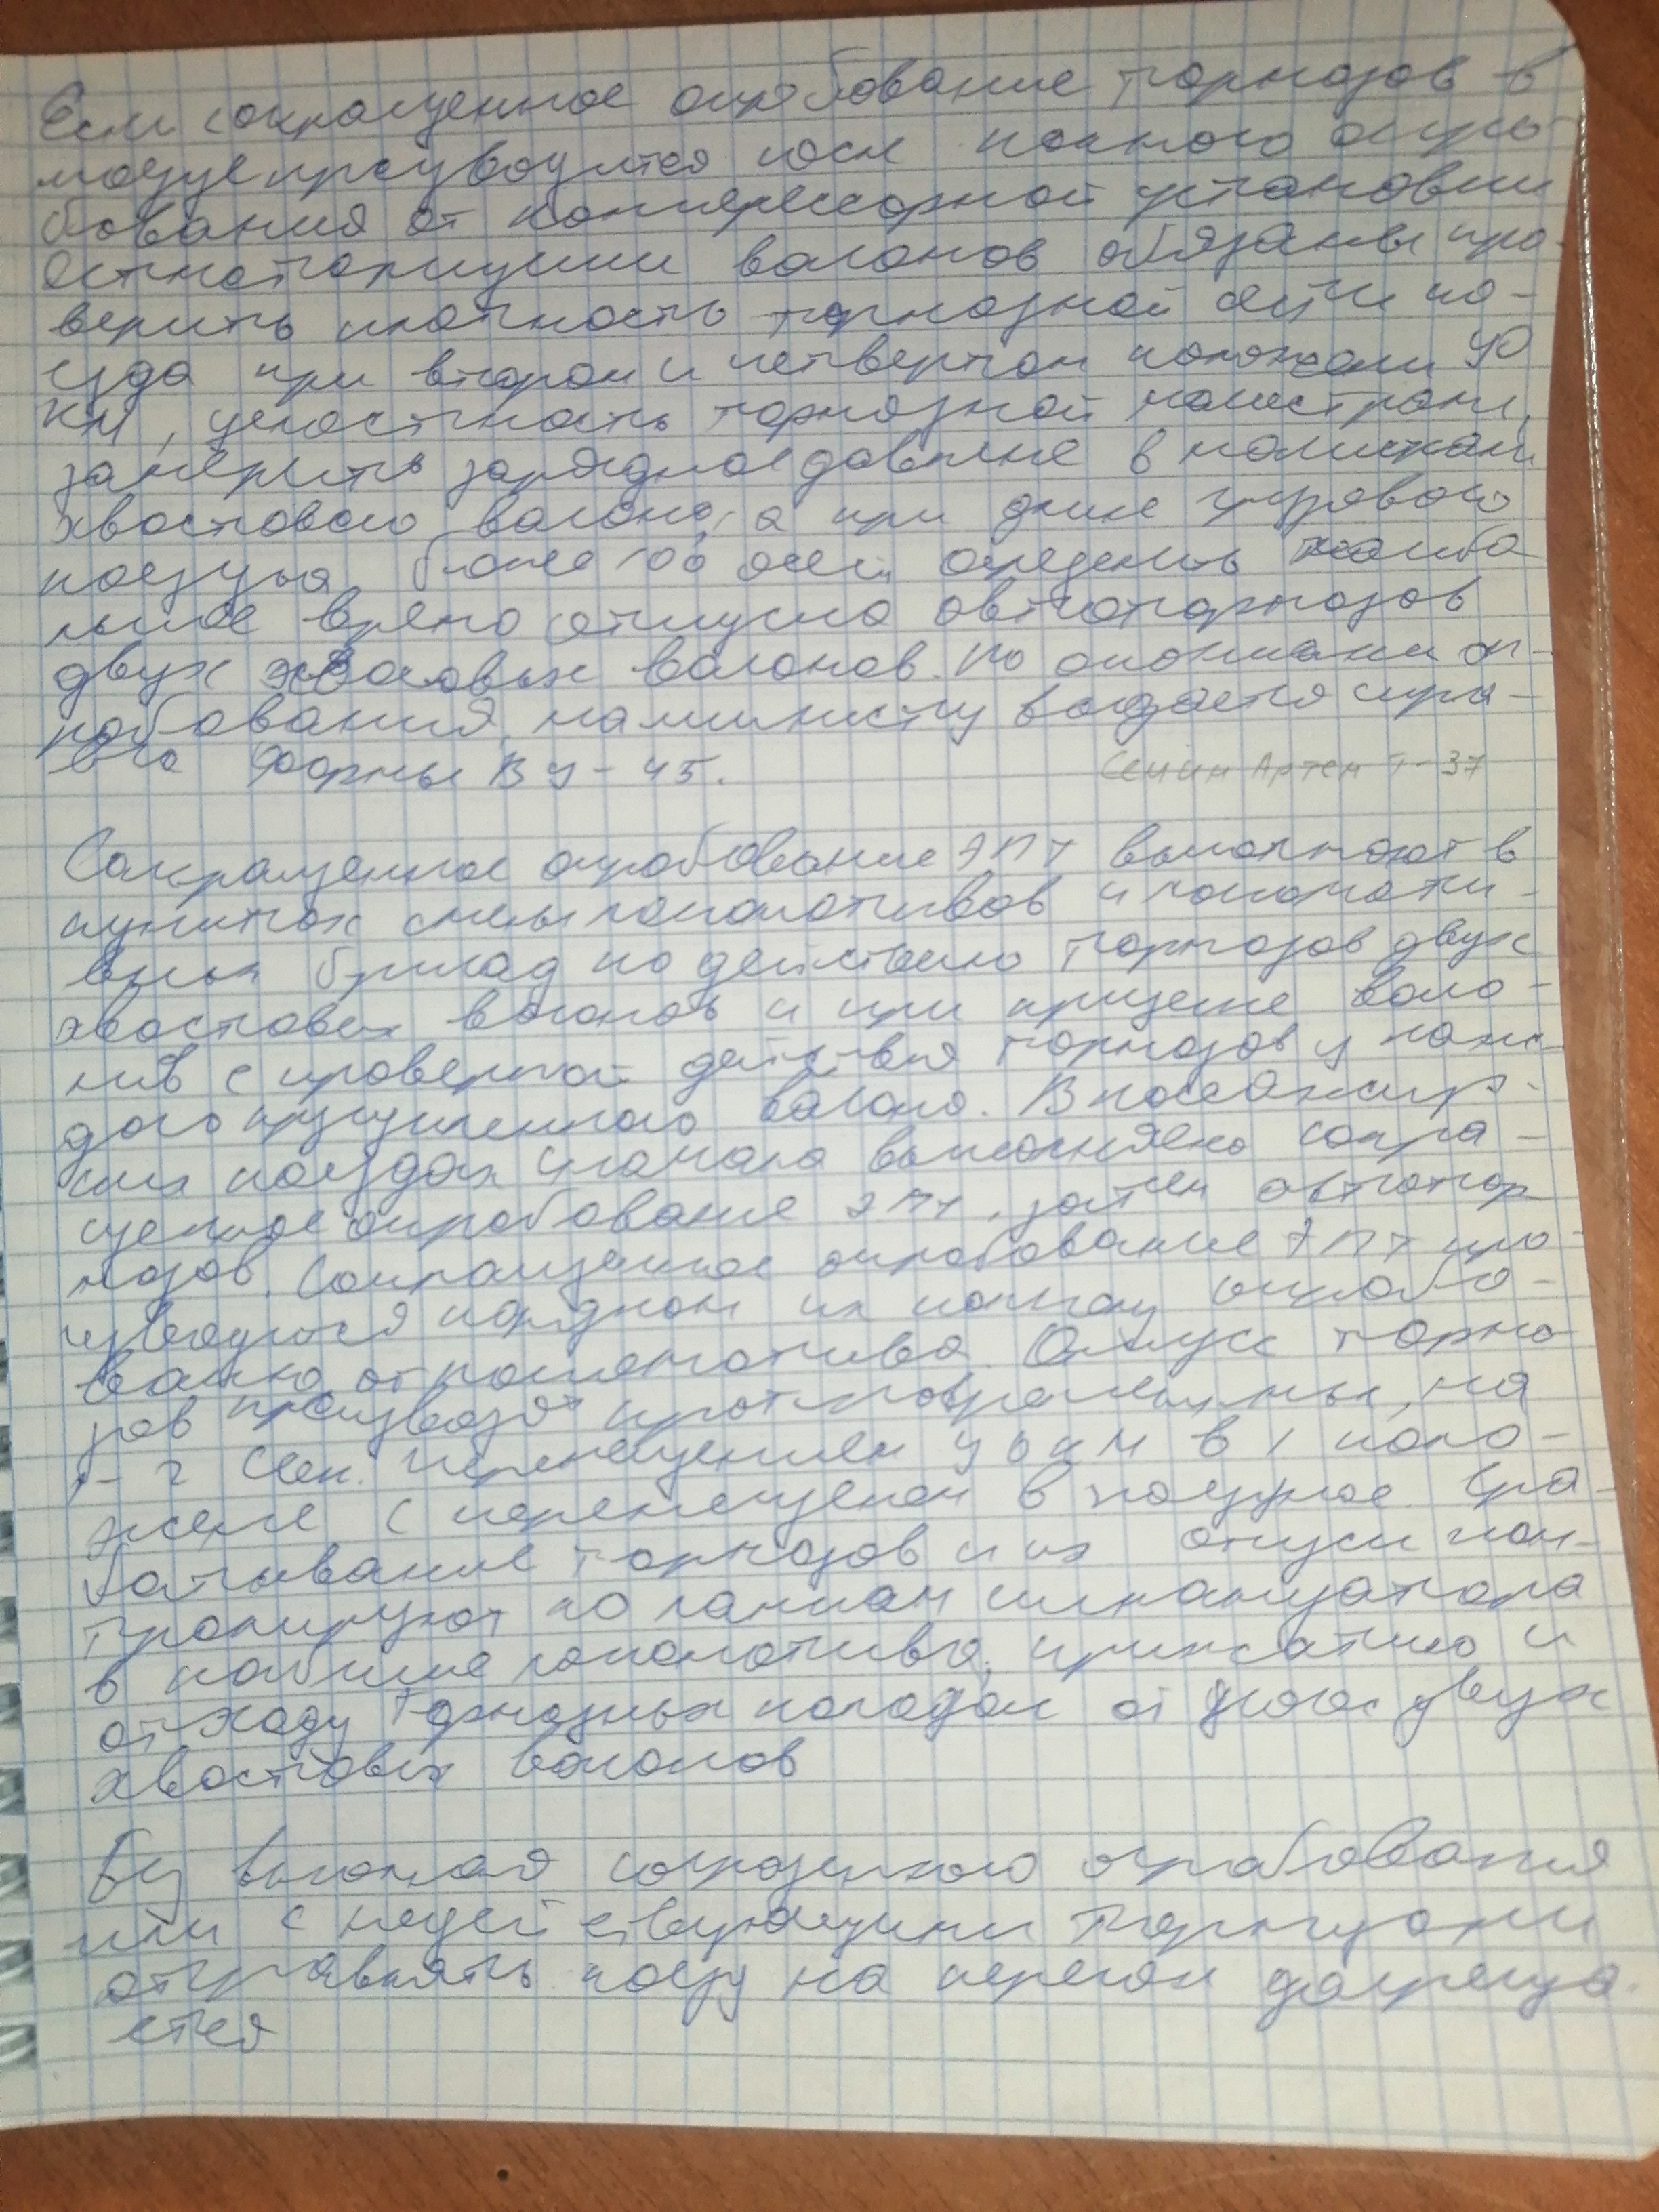 Если сокращенное опробование тормозов в
после полного опро
бования от компрессорной установки
вагонов обязаны про-
верить плотность тормозной сети по-
езда при втором и четвертом положени УО
КМ, целостность тормозной магистрали,
замерить зарядное давление в магистрали
хвостового вагона, а при длине грузового
поезда более 100 осей наибо
льшее время отпуска автотормозов
двух вагонов. По окончании оп-
робования, машинисту выдается спра-
вка формы ВУ-45.
Сенин Артем Т-37
Сокращенное опробование ЭПТ выполняют в
пунктах смены локомотивов и локомоти-
вных бригад по действию тормозов двух
хвостовых вагонов и при прицепке ваго-
нов с проверкой действия тормозов у каж-
дого прицепленного вагона. В пассажир-
ских поездах сначала выполняено сокра-
щенное опробование ЭПТ, затем автотор
мозов. Сокращенное опробование ЭПТ про-
порядком их полному опробо-
ванию от локомотива. Отпуск тормо
зов производят на
1-2 сек. перемещением УО КМ в 1 поло-
жение с перемещением в поездное. Сра-
батывание тормозов и их отпуск кон-
тролируют по лампам сигнализатора
в кабине локомотива, прижатию и
отходу тормозных колодок от двух
хвостовых вагонов
Без сокращенного опробования
или с недействующими тормозами
отправлять поезд на перегон
ется